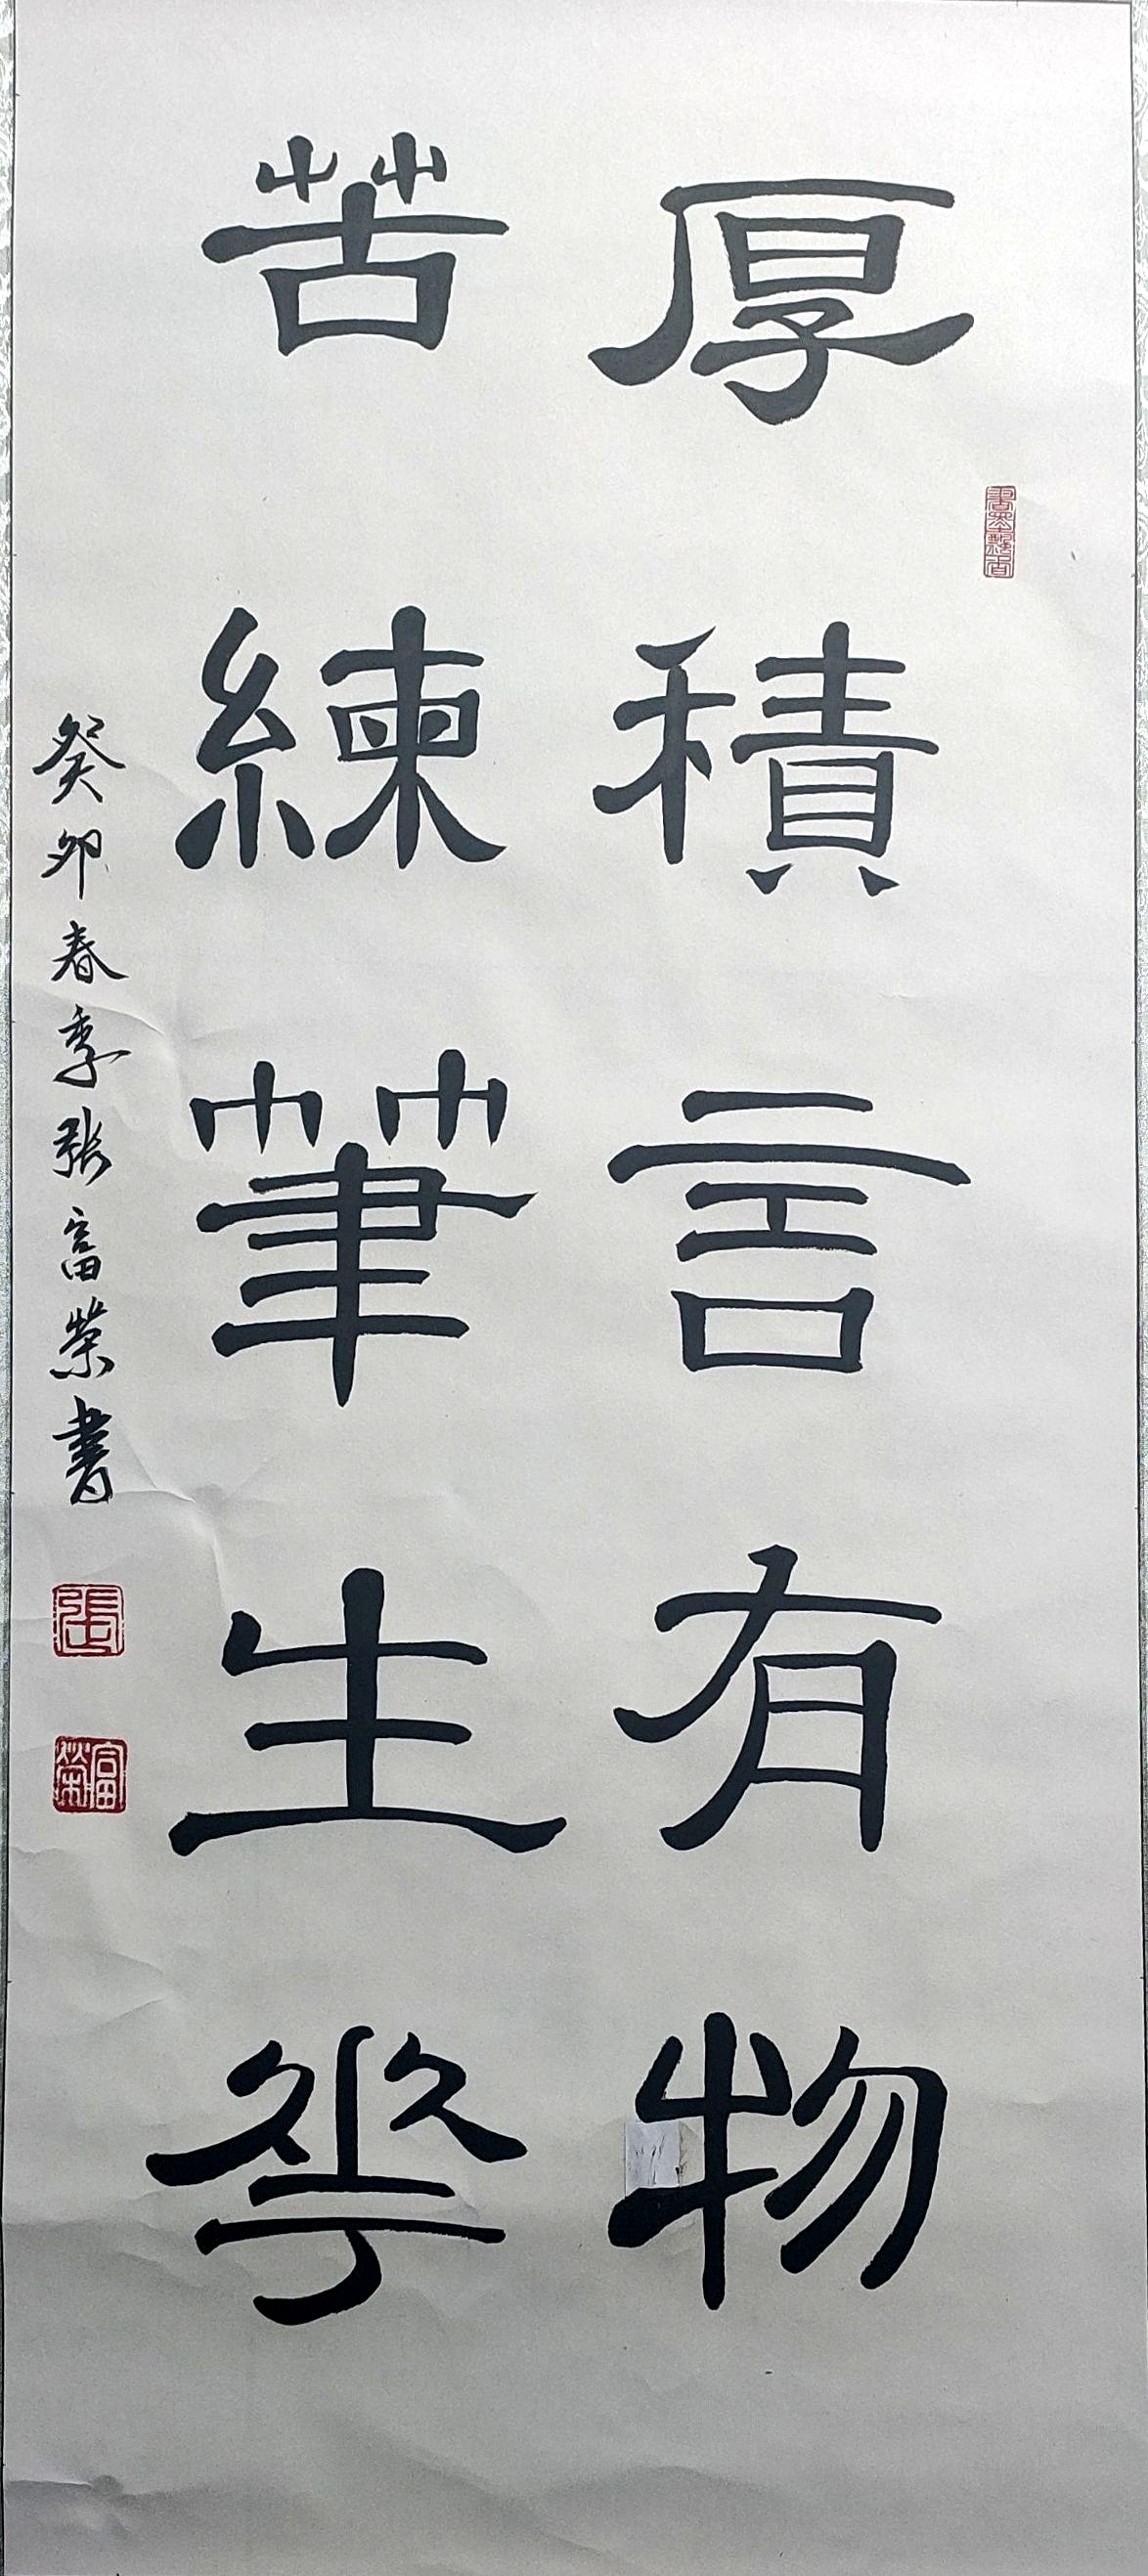 厚積言有物
苦練筆生花
癸卯春季張富榮書
張
富榮